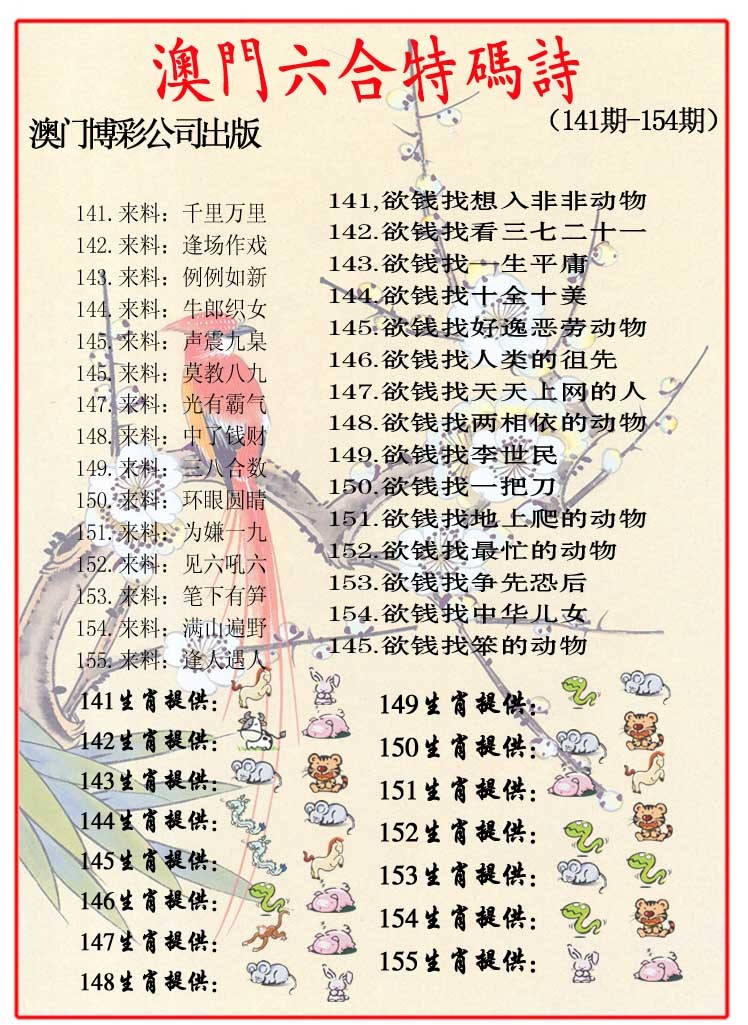 澳門六合特碼詩
澳门博彩公司出版
（141期-154期）
141.来料：千里万里
142.来料：逢场作戏
143.来料：例例如新
144.来料：牛郎织女
145.来料：声震九臬
145.来料：莫教八九
147.来料：光有霸气
148.来料：中了钱财
149.来料：三八合数
150.来料：环眼圆睛
151.来料：为嫌一九
152.来料：见六吼六
153.来料：笔下有笋
154.来料：满山遍野
155.来料：逢人遇人
141,欲钱找想入非非动物
142.欲钱找看三七二十一
143.欲钱找一生平庸
144.欲钱找十全十美
145.欲钱找好逸恶劳动物
146.欲钱找人类的祖先
147.欲钱找天天上网的人
148.欲钱找两相依的动物
149.欲钱找李世民
150.欲钱找一把刀
151.欲钱找地上爬的动物
152.欲钱找最忙的动物
153.欲钱找争先恐后
154.欲钱找中华儿女
145.欲钱找笨的动物
141生肖提供：
142生肖提供：
143生肖提供：
144生肖提供：
145生肖提供：
146生肖提供：
147生肖提供：
148生肖提供：
149生肖提供：
150生肖提供：
151生肖提供：
152生肖提供：
153生肖提供：
154生肖提供：
155生肖提供：